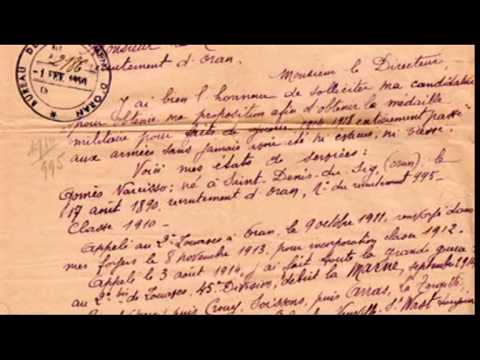 Monsieur le
recrutement d'Oran.
Monsieur le Directeur,
J'ai bien l'honneur de solliciter ma candidature
pour obtenir ma proposition afin d'obtenir la médaille
militaire pour faits de guerre 1914 1918 entièrement passé
aux armées sans jamais avoir été ni évacué, ni blessé.
Voici mes états de services:
Gomès Narcisso: né à Saint-Denis-du-Sig (Oran), le
17 août 1890, recrutement d'Oran, N° du recrutement 995-
Classe 1910-
Appelé au 2e Zouaves à Oran, le 9 octobre 1911, renvoyé dans
mes foyers le 8 novembre 1913, pour incorporation classe 1912.
Appelé le 3 août 1914, j'ai fait toute la grande guerre
au 2e bis de Zouaves, 45e Division, début la Marne, septembre 1914
puis Crouy, Soissons, puis Arras, la Targette,
Neuville, St Wast
BUREAU D'ORAN
2186
995